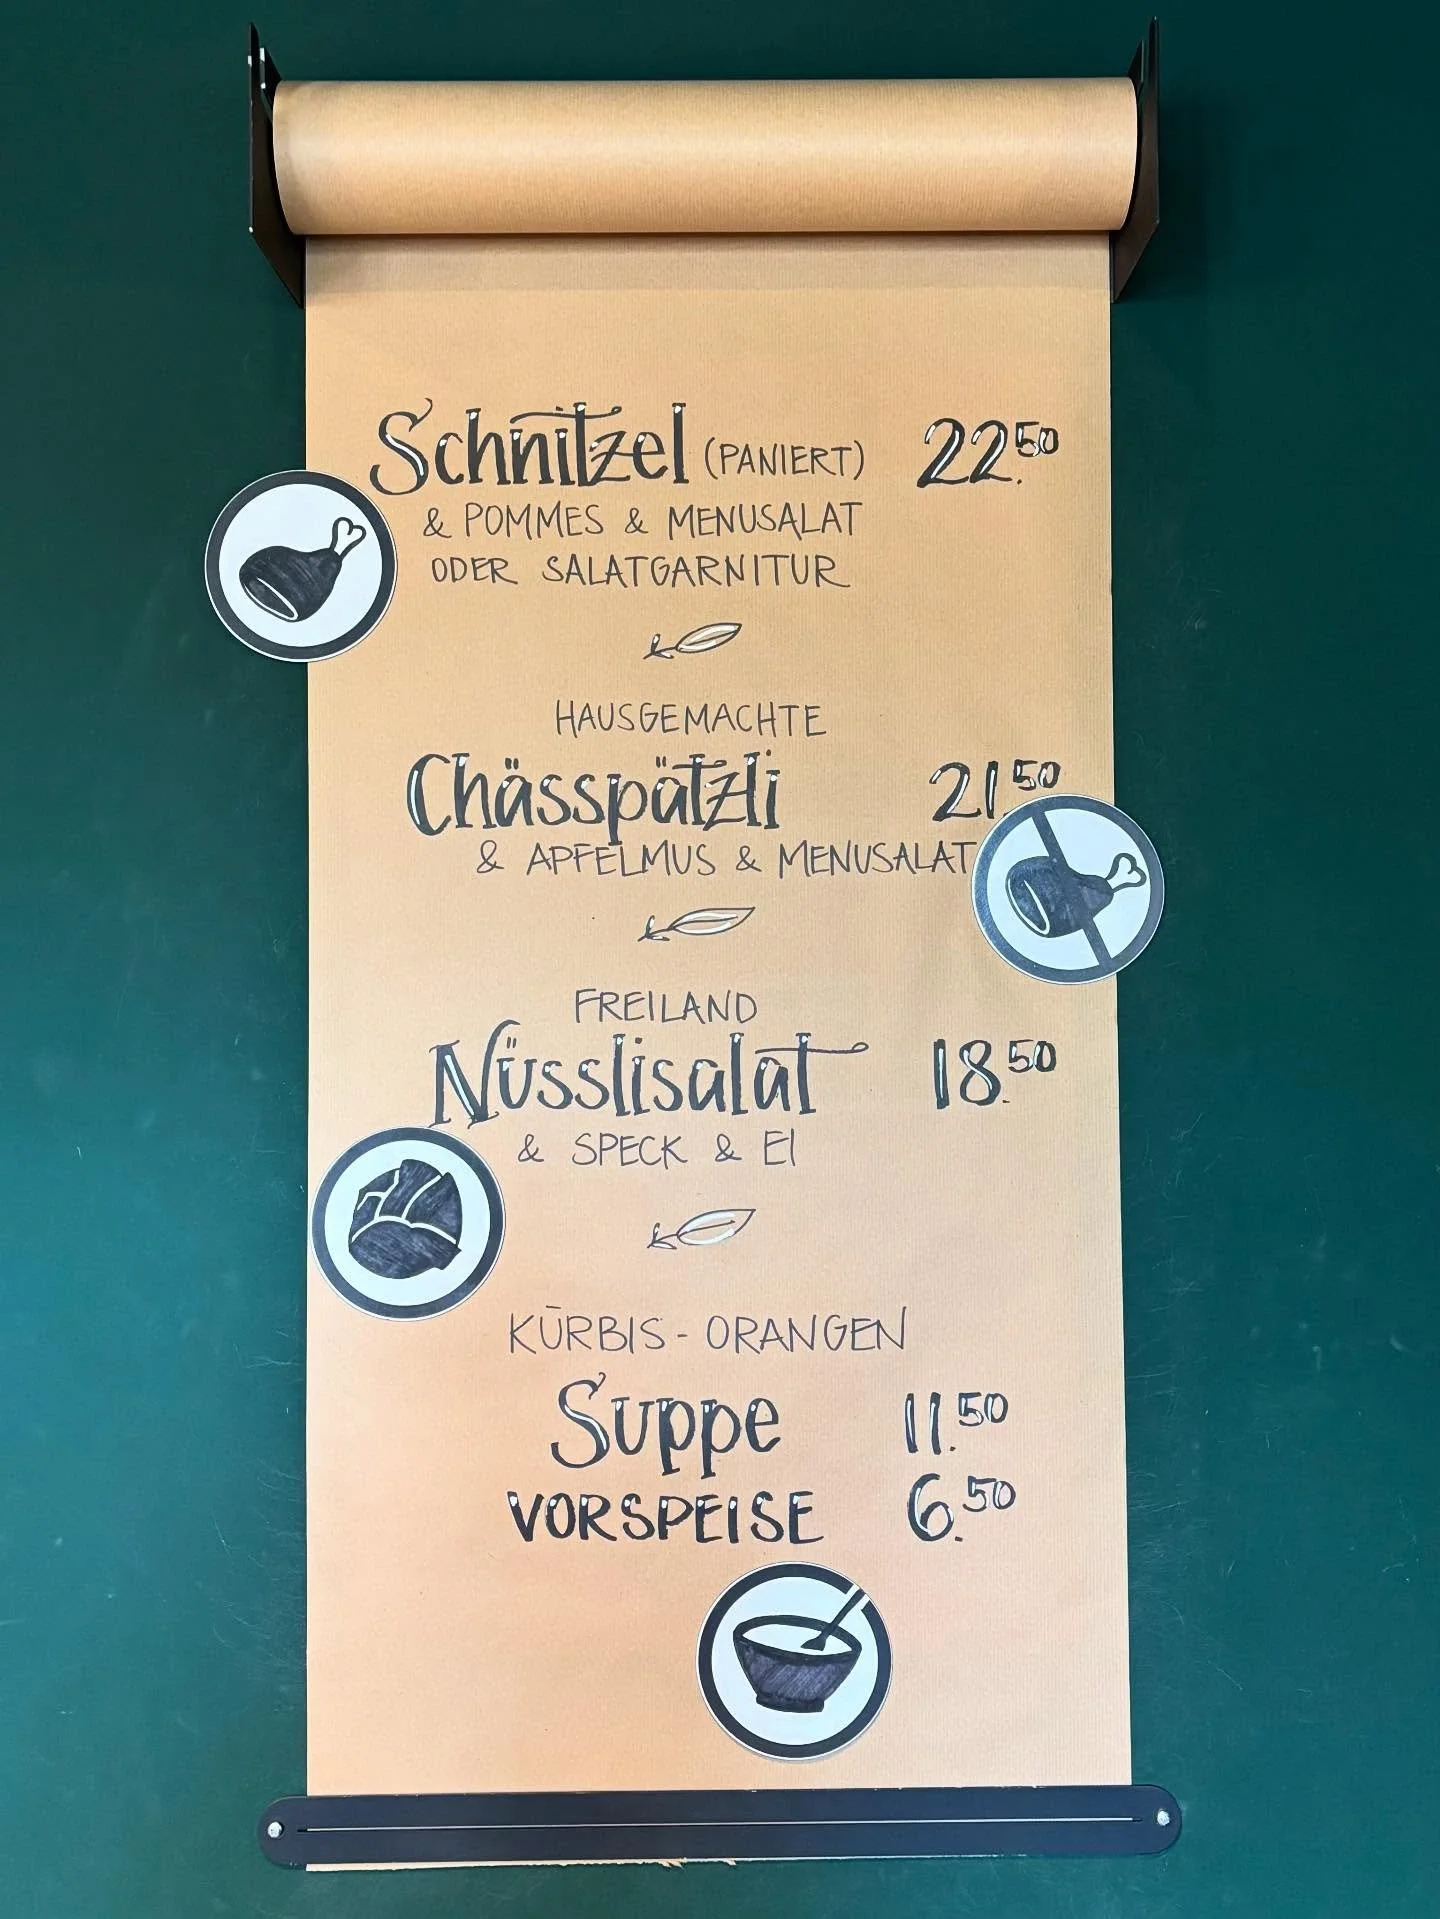 Schnitzel (PANIERT) 22.50
& POMMES & MENUSALAT
ODER SALATGARNITUR
HAUSGEMACHTE
Chässpätzli 21.50
& APFELMUS & MENUSALAT
FREILAND
Nüsslisalat 18.50
& SPECK & EI
KÜRBIS-ORANGEN
Suppe 11.50
VORSPEISE 6.50